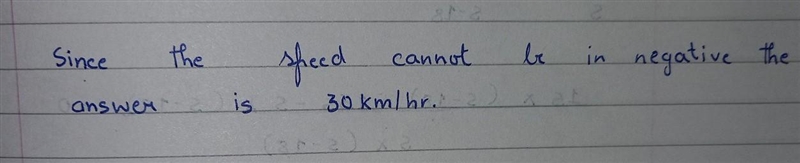 Since the speed cannot be in negative the
answer is 30 km/hr.